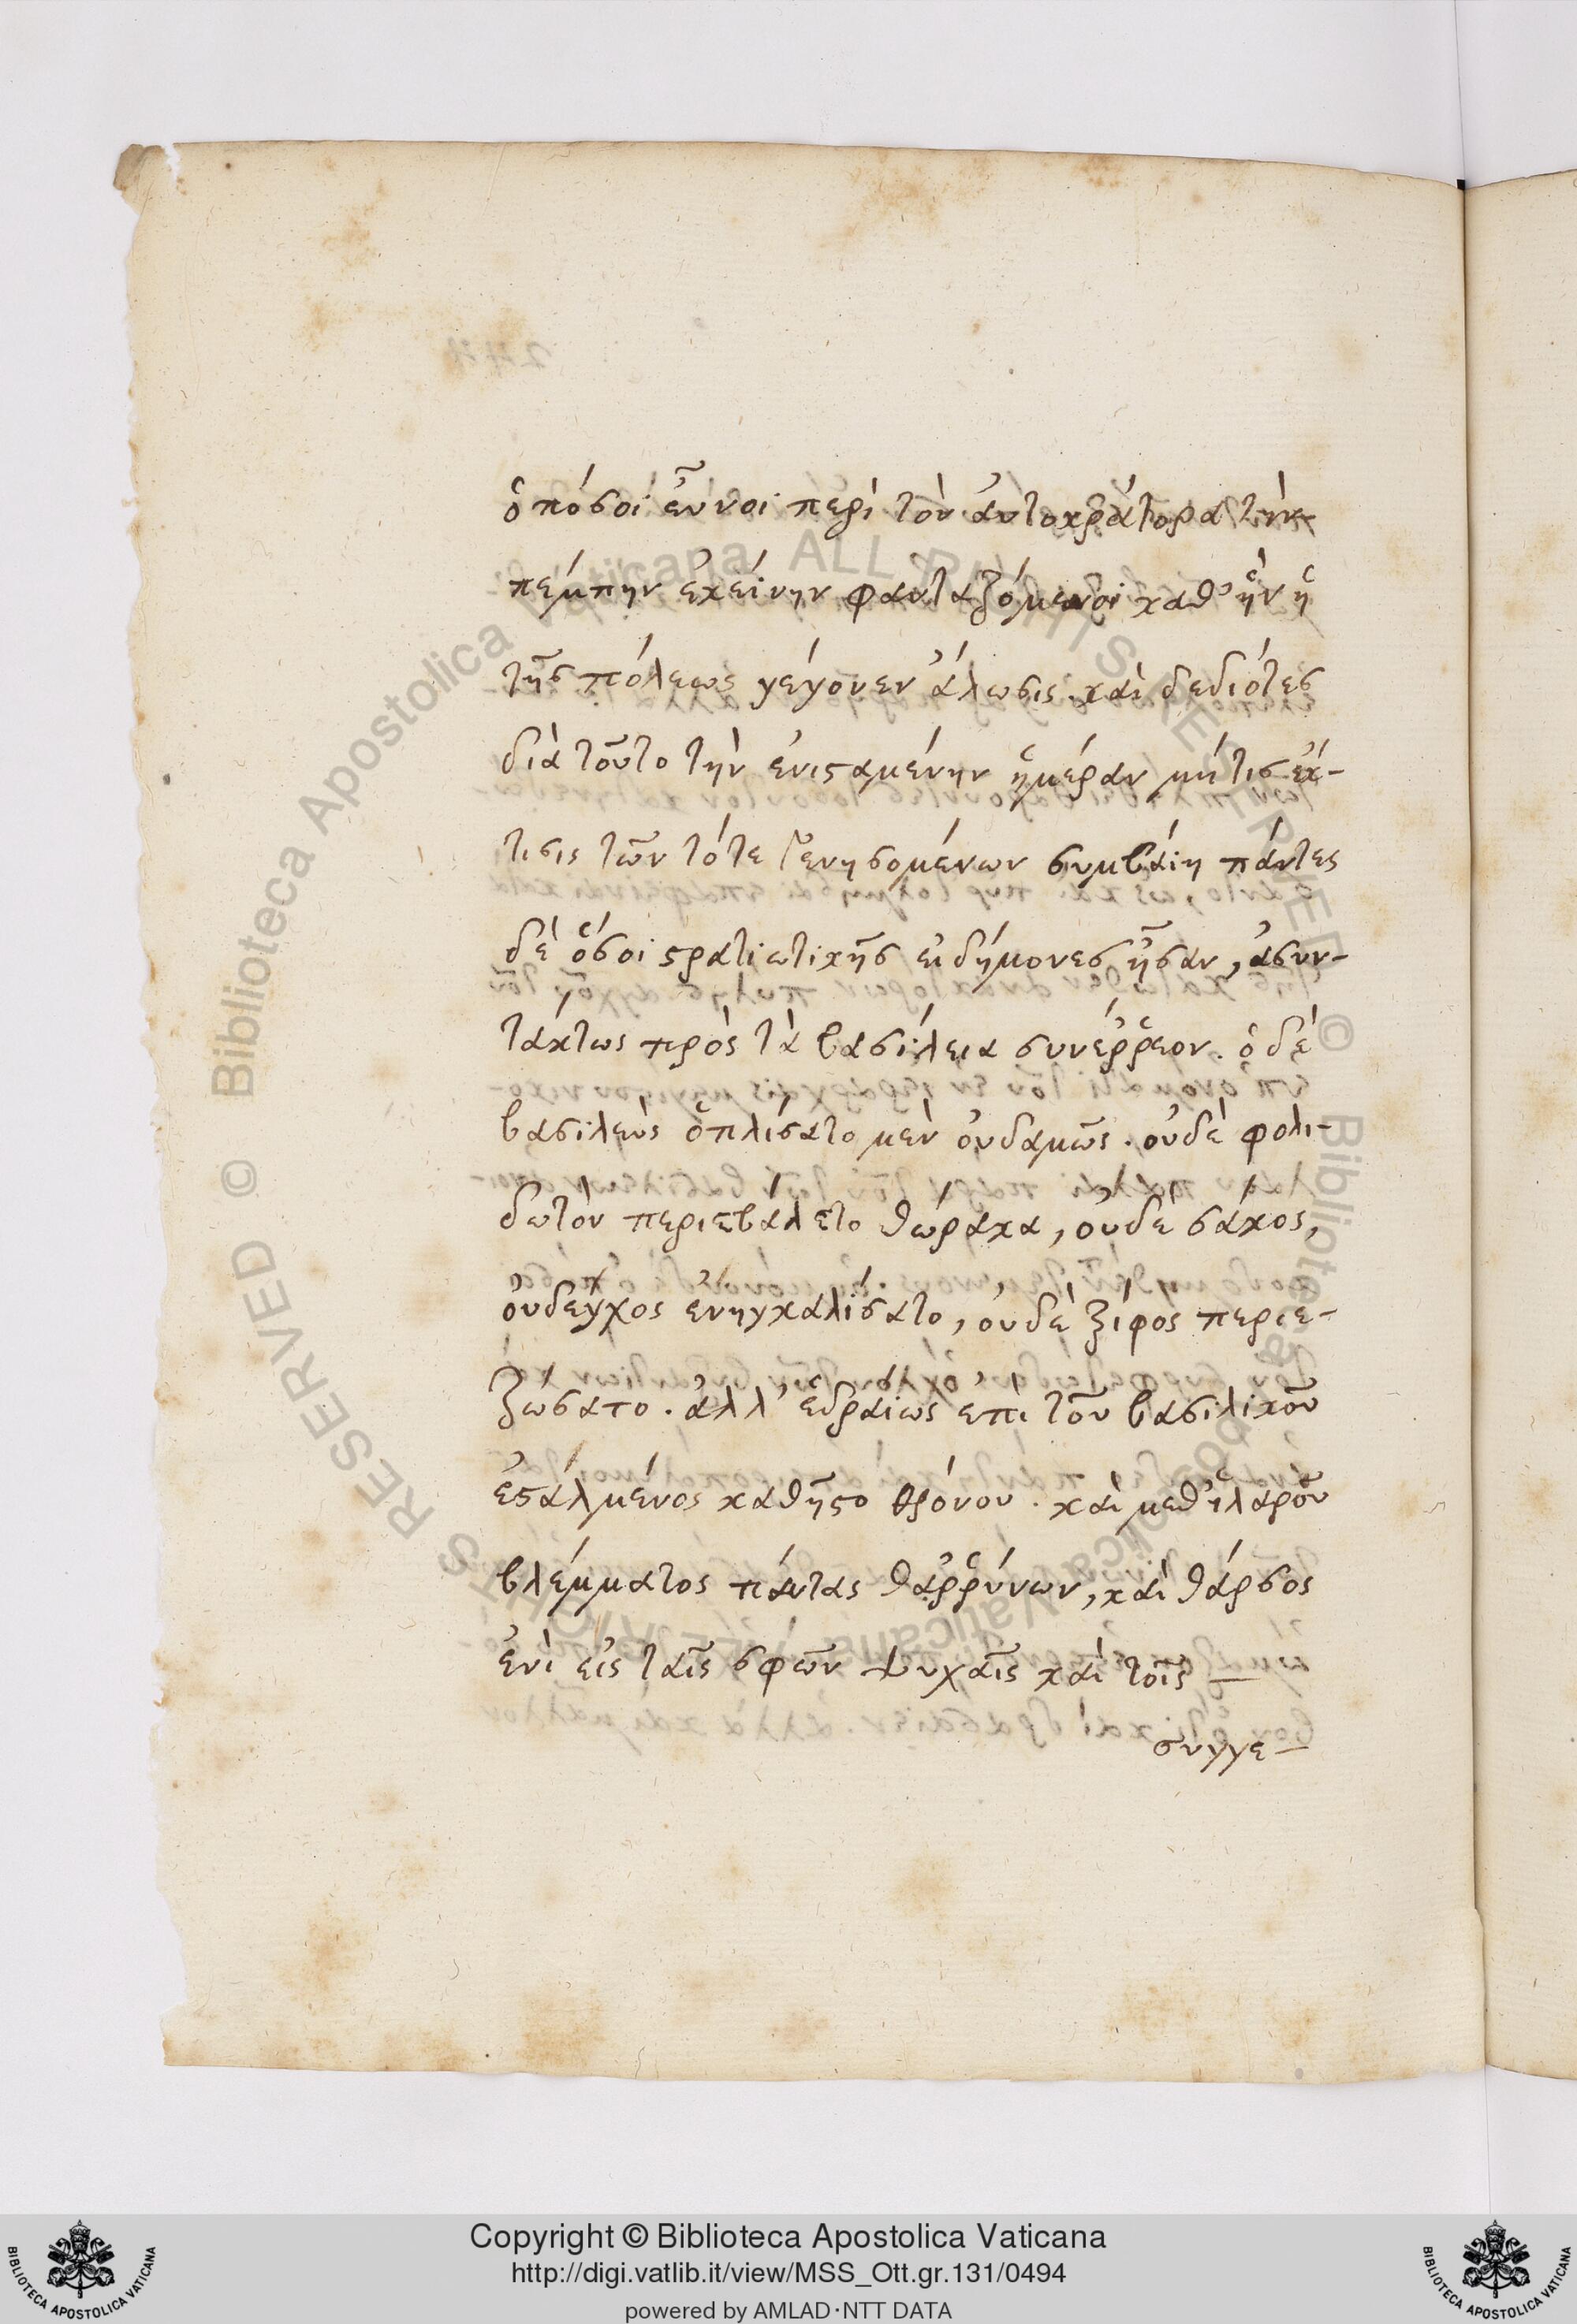 ὁπόσοι εὖνοι περὶ τὸν ἀυτοκράτορα τὴν
πέμπην ἐκείνην φανταζόμενοι καθ' ἣν ἡ
τῆς πόλεως γέγονεν ἅλωσις. καὶ δεδιότες
διὰ τοῦτο τὴν ἐνισταμένην ἡμέραν μήτις ἔκ-
τισις τῶν τότε γενησομένων συμβάιη πάντες
δὲ ὅσοι στρατιωτικῆς ειδήμονες ἦσαν, ἀσυν-
τάκτως πρὸς τὰ βασίλεια συνέῤῥεον. ὁ δὲ
βασιλεὺς ὁπλίσατο μὲν ὀυδαμῶς. ὀυδὲ φολι-
δωτὸν περιεβάλετο θώρακα, ὀυδὲ σάκος,
ὀυδεγχος ενηγκαλίσατο, ὀυδὲ ξίφος περιε-
ζώσατο. ἀλλ' ἑδράιως επὶ τοῦ βασιλικοῦ
ἐσάλμένος καθῆστο θρόνου. καὶ μεθ' ἱλαροῦ
βλέμματος πάντας θαῤῥύνων, καὶ θάρσος
ἐνὶ εὶς τᾶις σφῶν ψυχᾶις καὶ τοῖς —
συγγε —
Copyright © Biblioteca Apostolica Vaticana
http://digi.vatlib.it/view/MSS_Ott.gr.131/0494
powered by AMLAD·NTT DATA